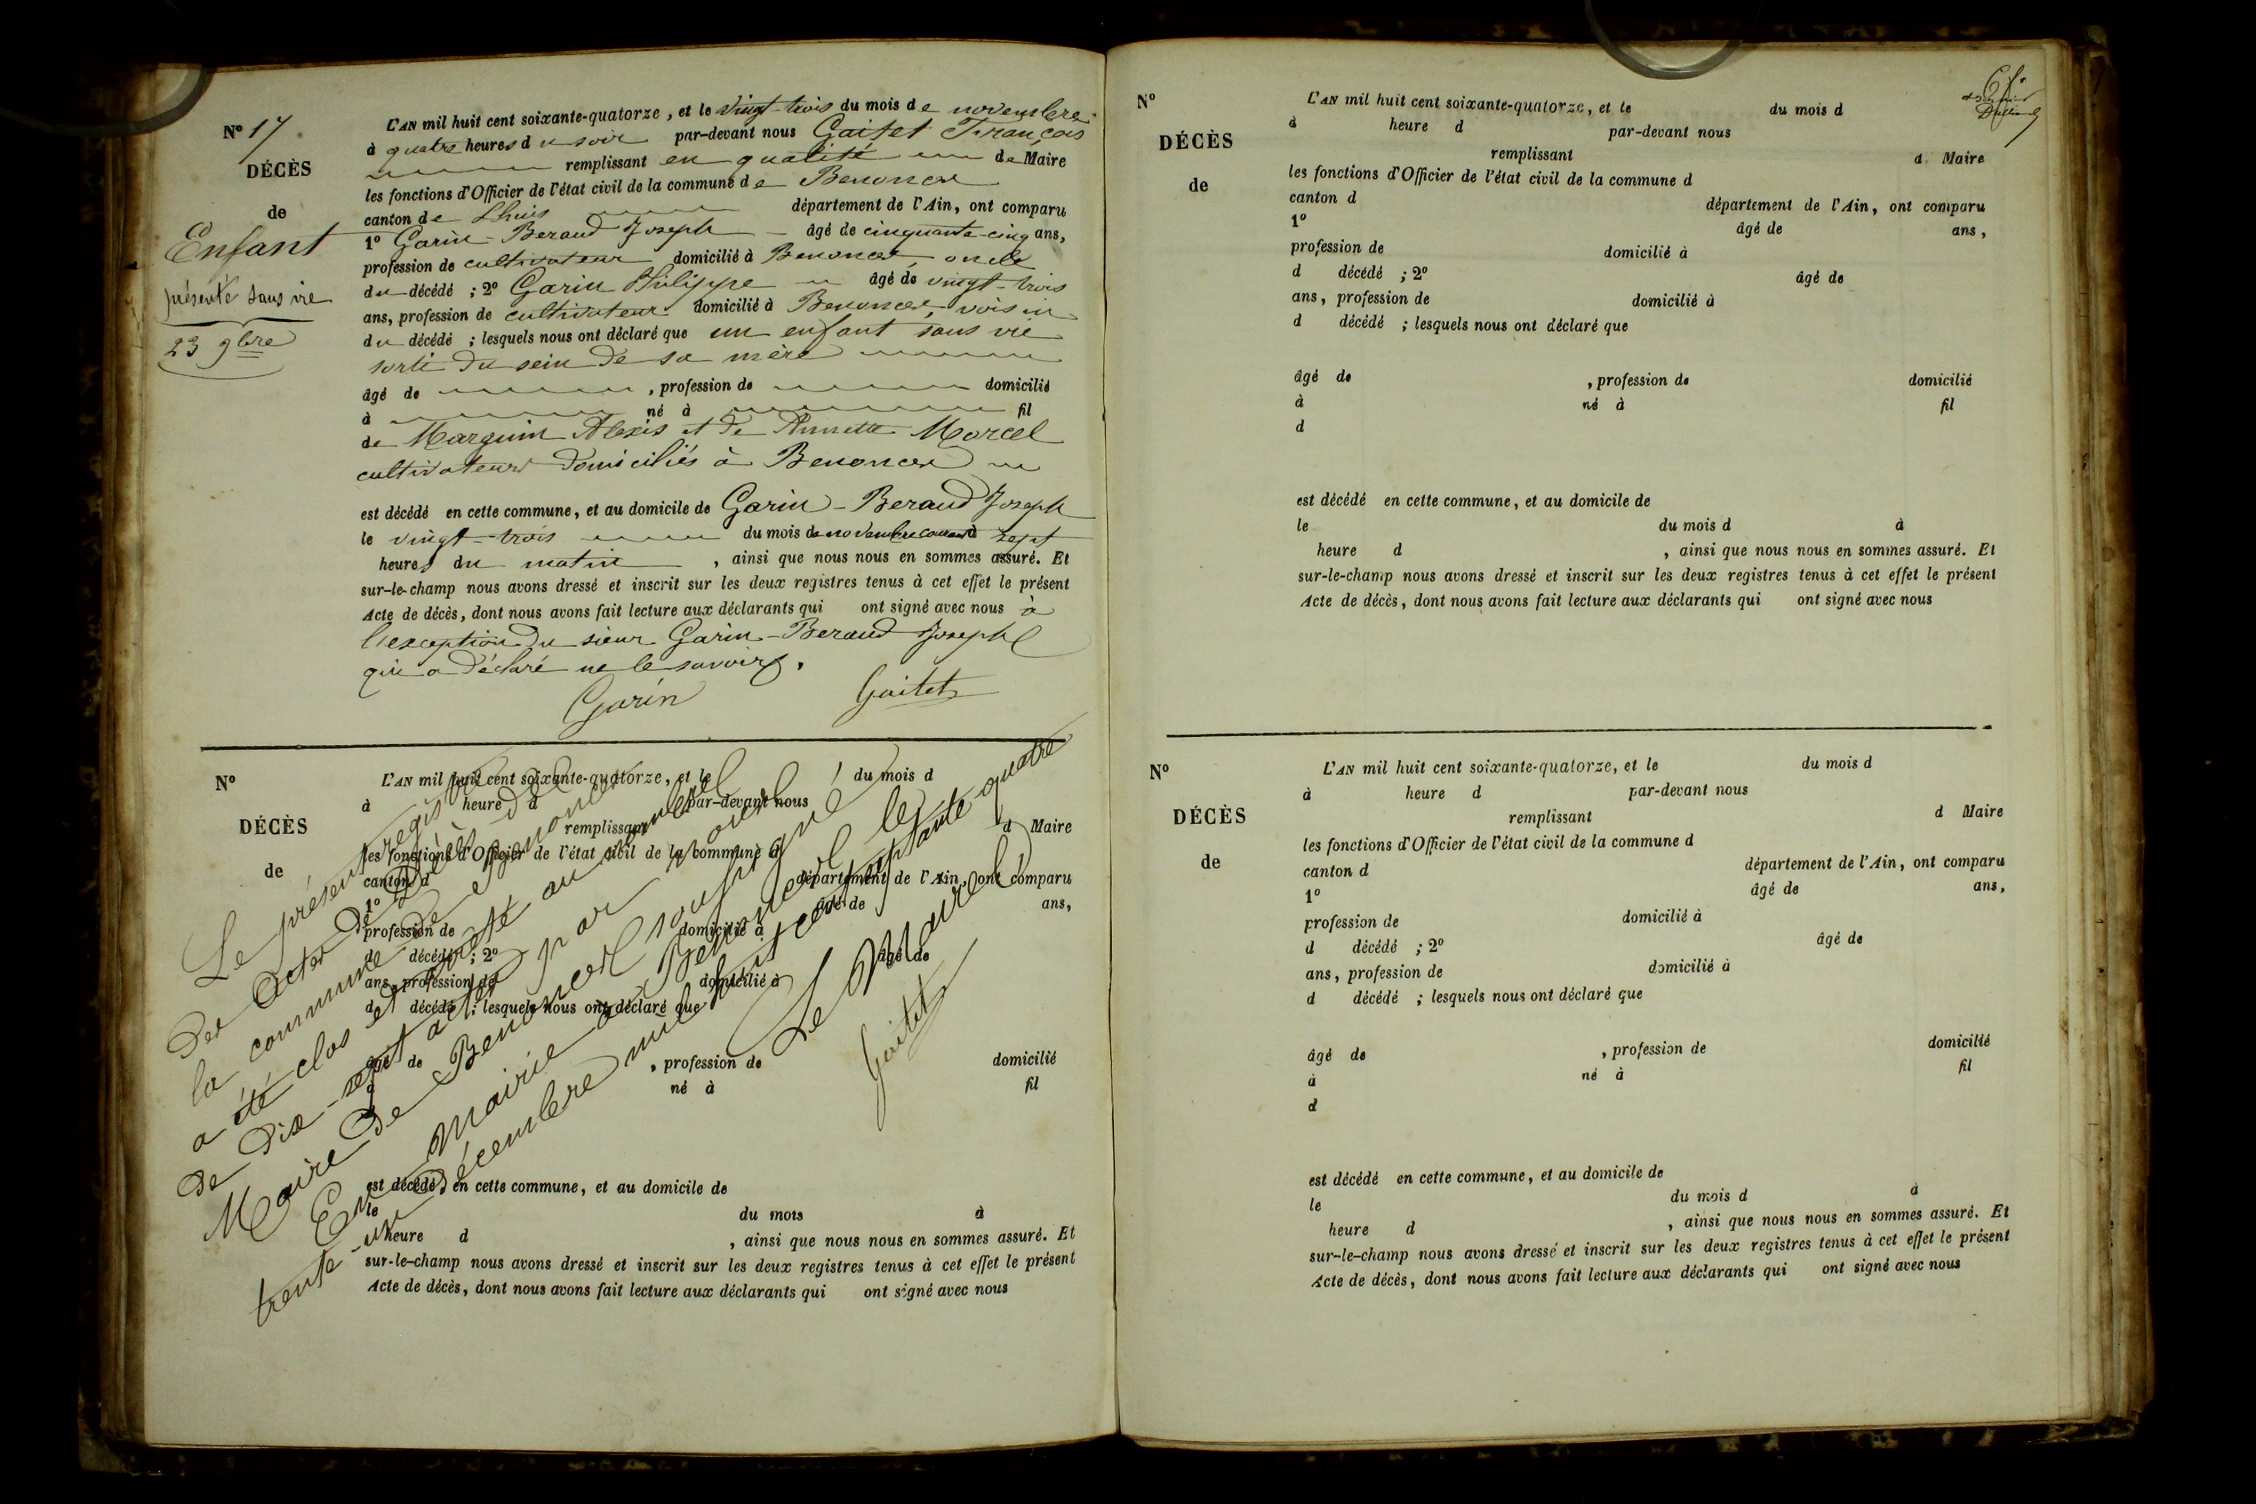 N° 17
DÉCÈS
de
Enfant
présenté sans vie
23 9bre
L'AN mil huit cent soixante-quatorze, et le vingt-trois du mois de novembre
à quatre heures du soir par-devant nous Gaitet François
remplissant en qualité de Maire
les fonctions d'Officier de l'état civil de la commune de Benonces
canton de Lhuis département de l'Ain, ont comparu
1° Garin-Beraud Joseph âgé de cinquante-cinq ans,
profession de cultivateur domicilié à Benonces, oncle
du décédé ; 2° Garin Philippe âgé de vingt-trois
ans, profession de cultivateur domicilié à Benonces, voisin
du décédé ; lesquels nous ont déclaré que un enfant sans vie
sorti du sein de sa mère
âgé de , profession de domicilié
à né à fil
de Marguin Alexis et de Annette Marcel
cultivateurs domiciliés à Benonces
est décédé en cette commune, et au domicile de Garin-Beraud Joseph
le vingt-trois du mois de novembre courant à sept
heures du matin , ainsi que nous nous en sommes assuré. Et
sur-le-champ nous avons dressé et inscrit sur les deux registres tenus à cet effet le présent
Acte de décès, dont nous avons fait lecture aux déclarants qui ont signé avec nous à
l'exception du sieur Garin-Beraud Joseph
qui a déclaré ne le savoir.
Garin Gaitet
N°
DÉCÈS
de
L'AN mil huit cent soixante-quatorze, et le du mois d
à heure d par-devant nous
remplissant d Maire
les fonctions d'Officier de l'état civil de la commune d
canton d département de l'Ain, ont comparu
1° âgé de ans,
profession de domicilié à
d décédé ; 2° âgé de
ans, profession de domicilié à
d décédé ; lesquels nous ont déclaré que
âgé de , profession de domicilié
à né à fil
d
est décédé en cette commune, et au domicile de
le du mois à
heure d , ainsi que nous nous en sommes assuré. Et
sur-le-champ nous avons dressé et inscrit sur les deux registres tenus à cet effet le présent
Acte de décès, dont nous avons fait lecture aux déclarants qui ont signé avec nous
Le présent registre
des actes de Décès de
la commune de Benonces
a été clos et arrêté au numéro
de dix-sept actes par nous
Maire de Benonces soussigné
En Mairie à Benonces le
trente-un décembre mil huit cent soixante quatre
Le Maire
Gaitet
N°
DÉCÈS
de
L'AN mil huit cent soixante-quatorze, et le du mois d
à heure d par-devant nous
remplissant d Maire
les fonctions d'Officier de l'état civil de la commune d
canton d département de l'Ain, ont comparu
1° âgé de ans,
profession de domicilié à
d décédé ; 2° âgé de
ans, profession de domicilié à
d décédé ; lesquels nous ont déclaré que
âgé de , profession de domicilié
à né à fil
d
est décédé en cette commune, et au domicile de
le du mois d à
heure d , ainsi que nous nous en sommes assuré. Et
sur-le-champ nous avons dressé et inscrit sur les deux registres tenus à cet effet le présent
Acte de décès, dont nous avons fait lecture aux déclarants qui ont signé avec nous
N°
DÉCÈS
de
L'AN mil huit cent soixante-quatorze, et le du mois d
à heure d par-devant nous
remplissant d Maire
les fonctions d'Officier de l'état civil de la commune d
canton d département de l'Ain, ont comparu
1° âgé de ans,
profession de domicilié à
d décédé ; 2° âgé de
ans, profession de domicilié à
d décédé ; lesquels nous ont déclaré que
âgé de , profession de domicilié
à né à fil
d
est décédé en cette commune, et au domicile de
le du mois d à
heure d , ainsi que nous nous en sommes assuré. Et
sur-le-champ nous avons dressé et inscrit sur les deux registres tenus à cet effet le présent
Acte de décès, dont nous avons fait lecture aux déclarants qui ont signé avec nous